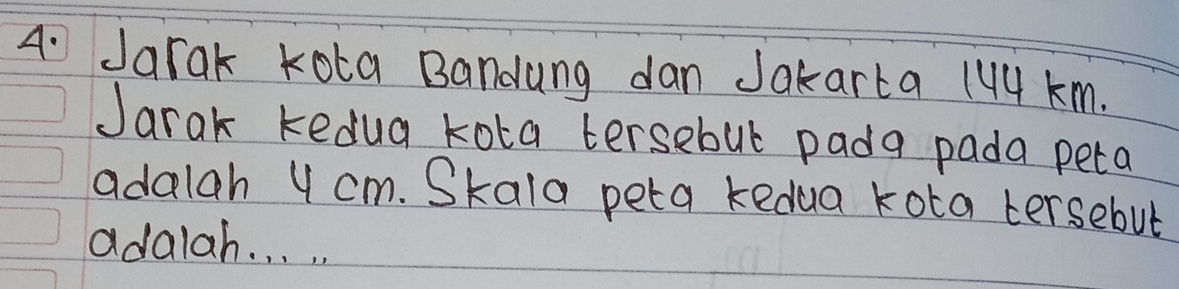 4. Jarak kota Bandung dan Jakarta 144 km.
Jarak kedua kota tersebut pada pada peta
adalah 4 cm. Skala peta kedua kota tersebut
adalah......